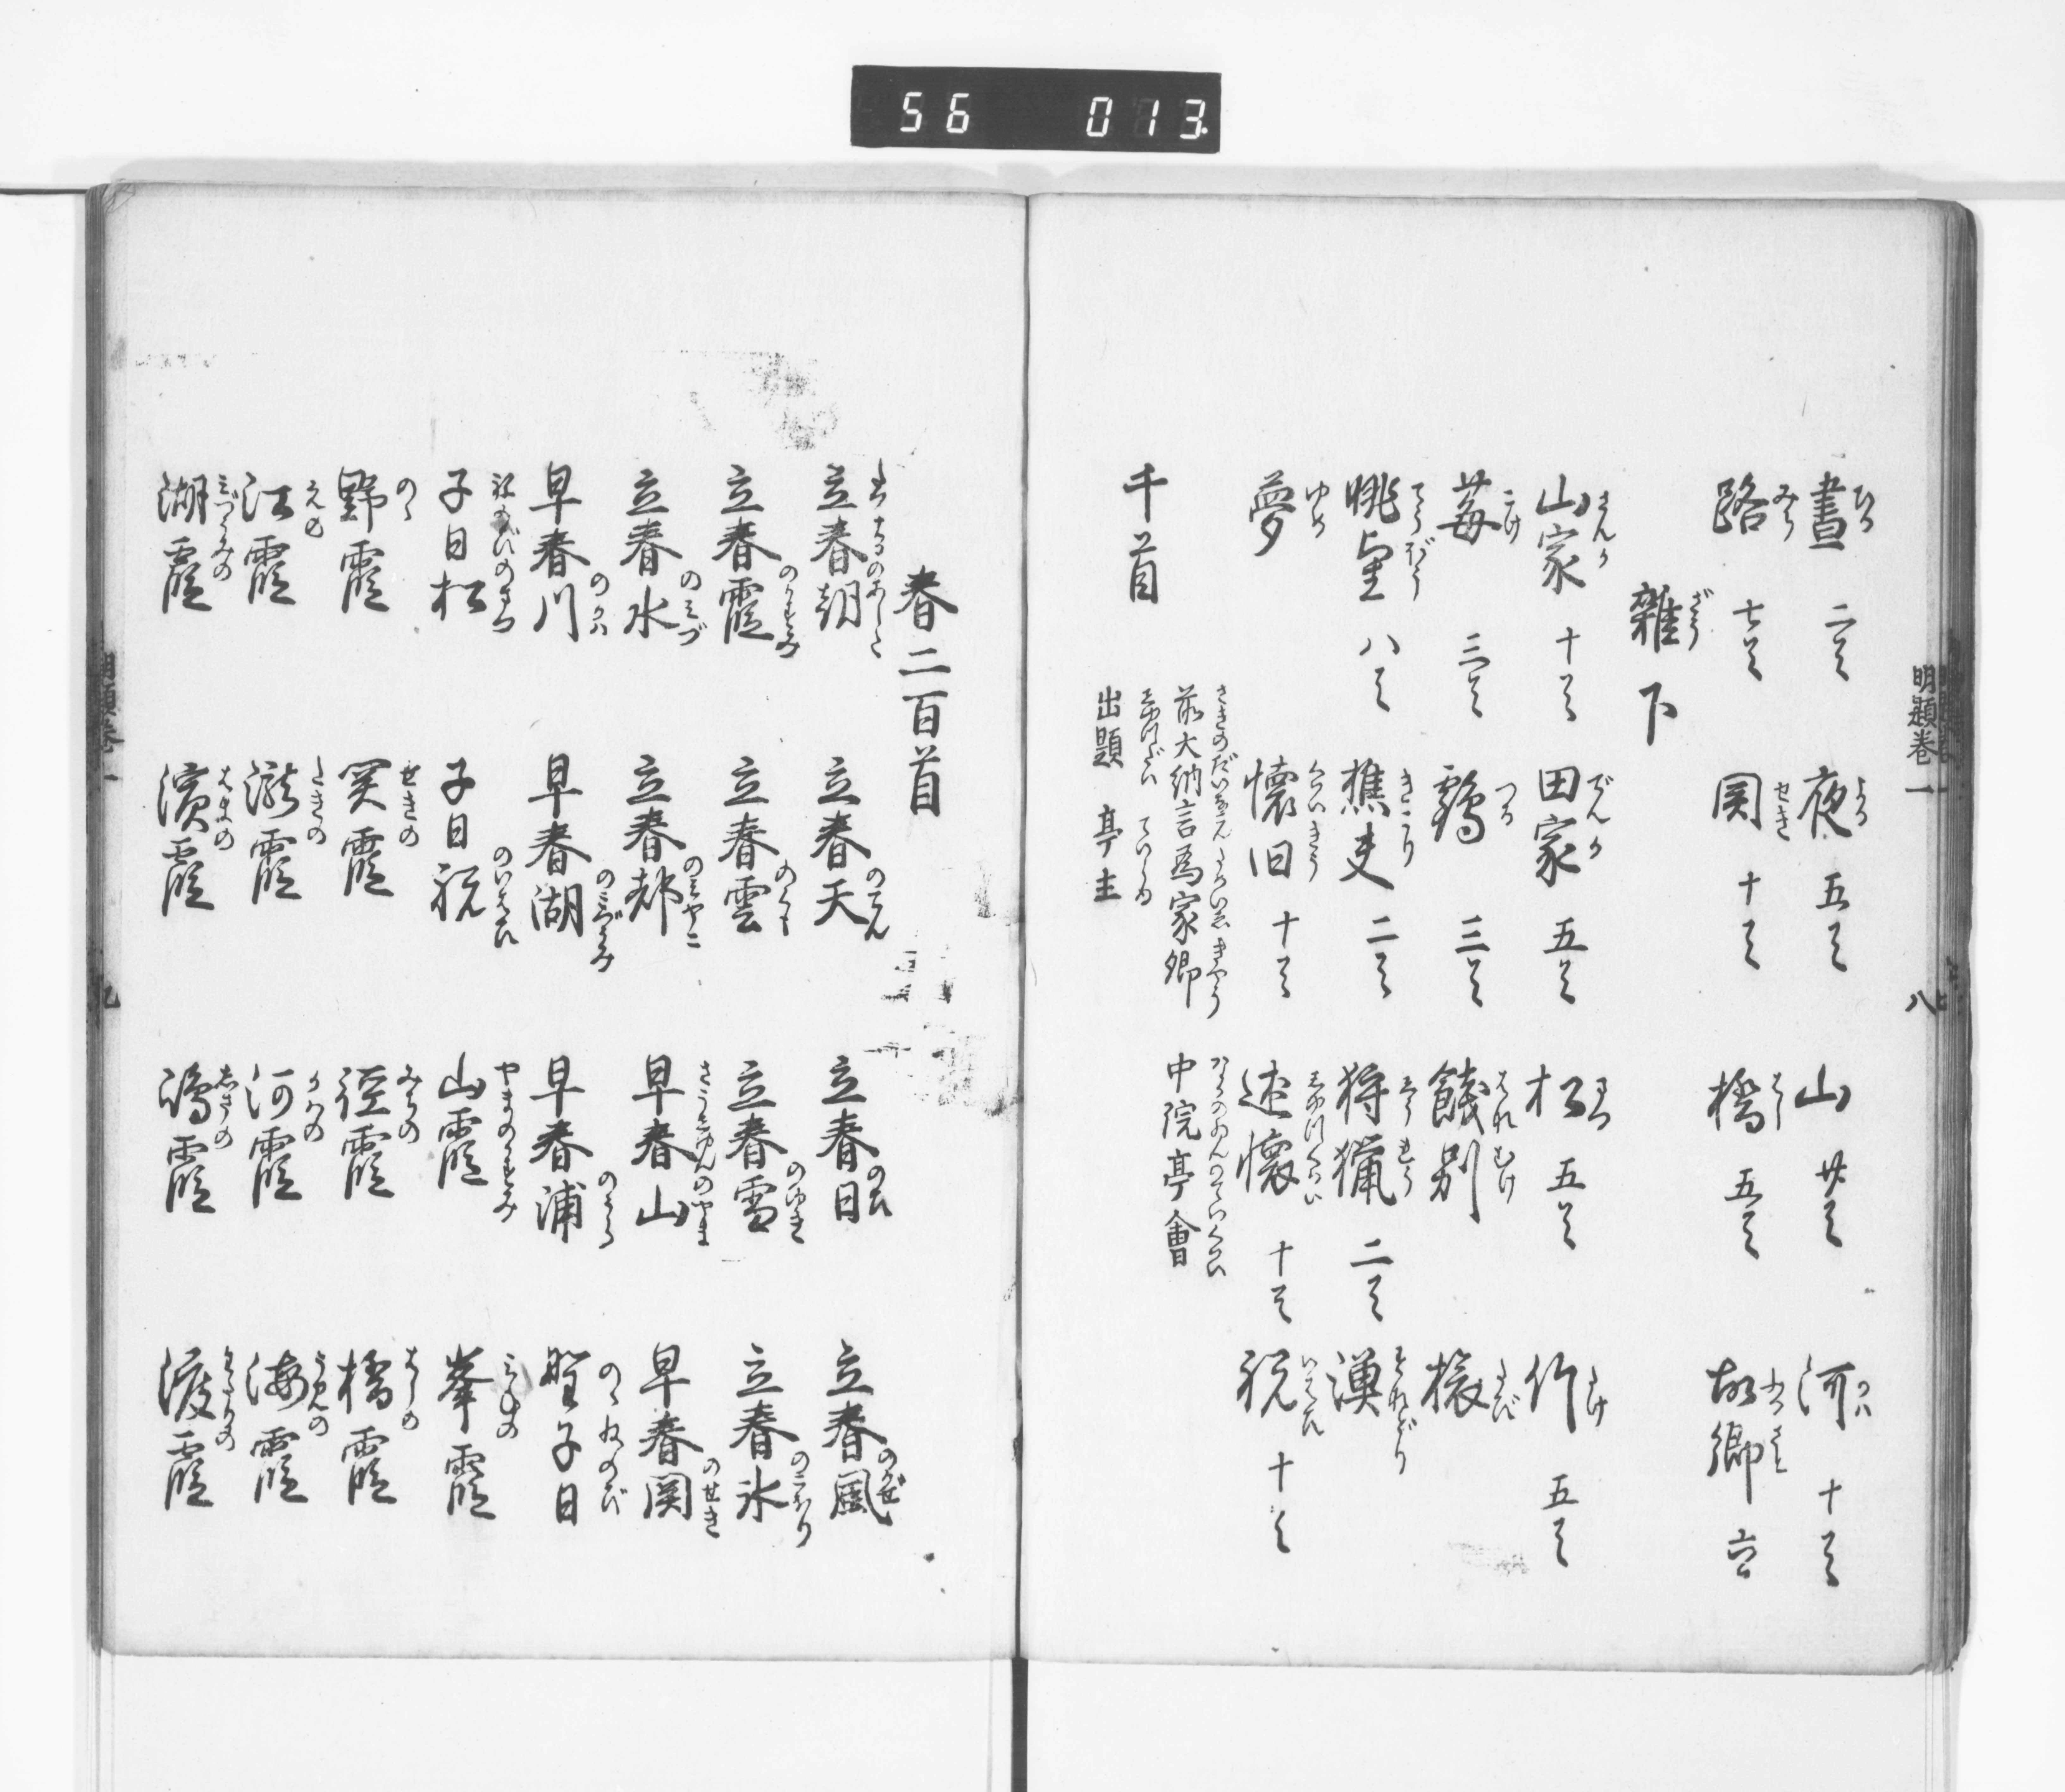 56 013.
明題卷一 八
晝 二首 夜 五首 山 廿首 河 十首
路 七首 関 十首 橋 五首 故郷 六首
雜下
山家 十首 田家 五首 松 五首 竹 五首
莓 三首 鶴 三首 餞別 旅
眺望 八首 樵夫 二首 狩獵 二首 漁
夢 懐旧 十首 述懐 十首 祝 十首
千首 前大納言為家卿 中院亭會
出題 亭主
春二百首
立春朝 立春天 立春日 立春風
立春霞 立春雲 立春雪 立春氷
立春水 立春都 早春山 早春関
早春川 早春湖 早春浦 野子日
子日松 子日祝 山霞 峯霞
野霞 関霞 徑霞 橋霞
江霞 瀧霞 河霞 海霞
湖霞 濱霞 嶋霞 渡霞
明題卷一 九